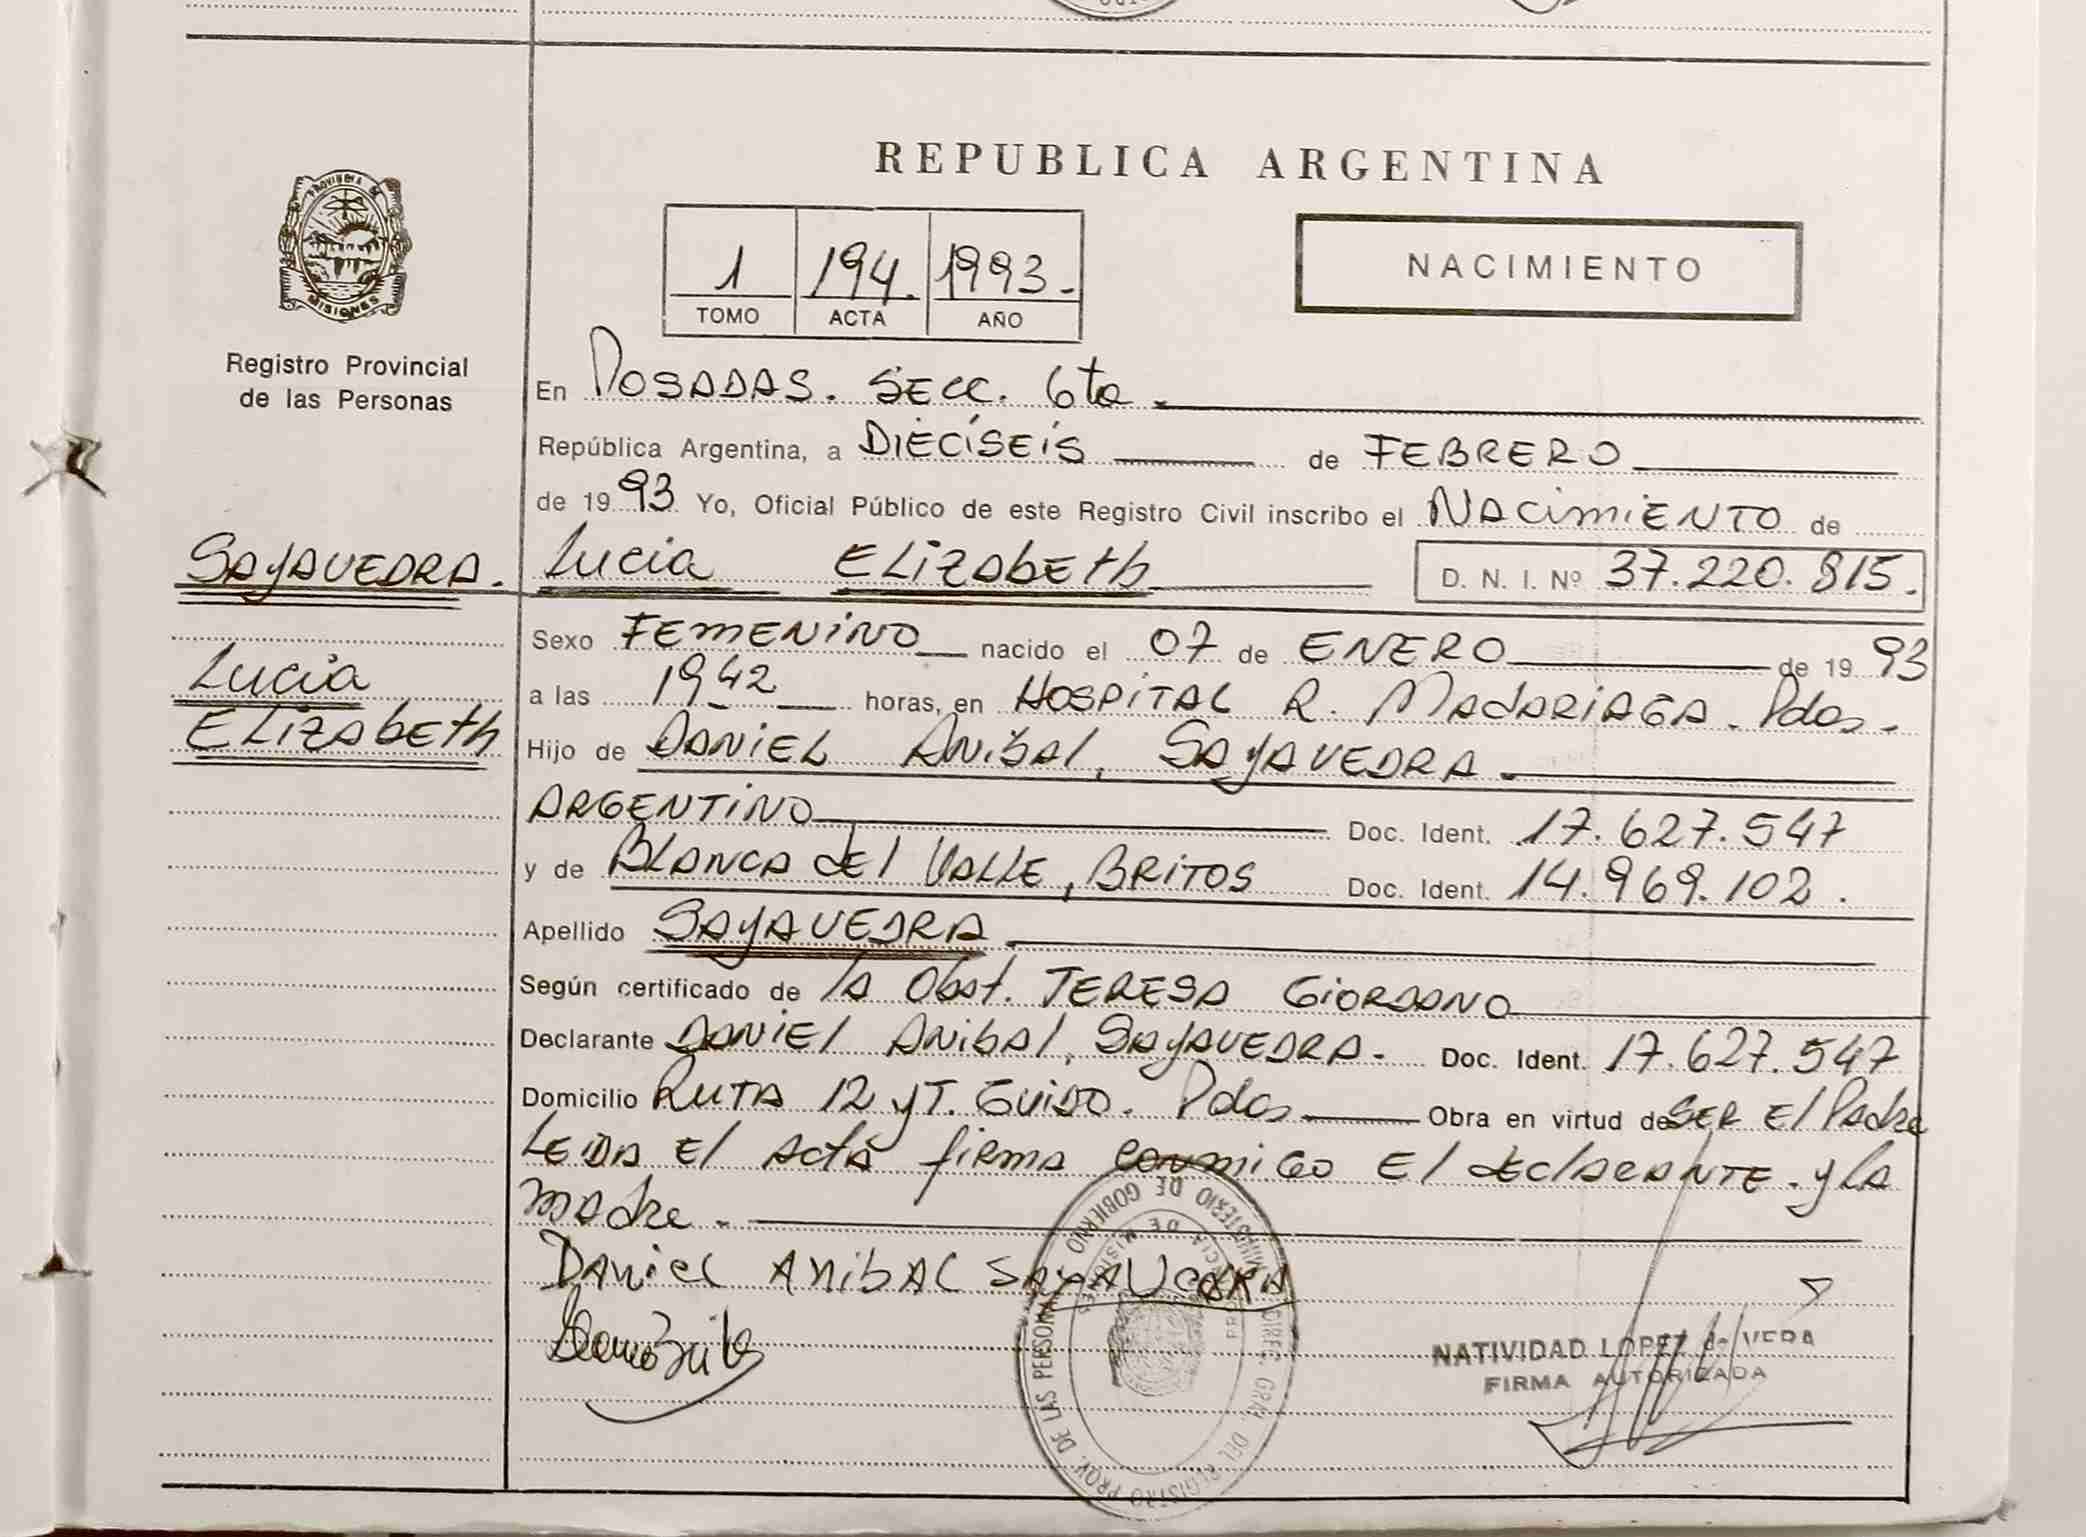 REPUBLICA ARGENTINA
PROVINCIA DE
MISIONES
Registro Provincial
de las Personas
1 194. 1993.
TOMO ACTA AÑO
NACIMIENTO
En POSADAS. SECC. 6ta.
República Argentina, a DIECISEIS de FEBRERO
de 1993 Yo, Oficial Público de este Registro Civil inscribo el NACIMIENTO de
SAYAVEDRA. Lucia ELIZABETH D. N. I. Nº 37.220.815.
Sexo FEMENINO nacido el 07 de ENERO de 1993
Lucia
ELIZABETH
a las 1942 horas, en HOSPITAL R. MADARIAGA. Pdas.
Hijo de DANIEL ANIBAL, SAYAVEDRA.
ARGENTINO Doc. Ident. 17.627.547
y de BLANCA DEL VALLE, BRITOS Doc. Ident. 14.969.102.
Apellido SAYAVEDRA
Según certificado de la Obst. TERESA GIORDANO
Declarante DANIEL ANIBAL, SAYAVEDRA. Doc. Ident. 17.627.547
Domicilio RUTA 12 y T. GUIDO. Pdas Obra en virtud de SER El Padre
LEIDA El Acta firma conmigo El declarante. y la
madre.
DANIEL ANIBAL SAYAVEDRA
NATIVIDAD LOPEZ de VERA
FIRMA AUTORIZADA
MINISTERIO DE GOBIERNO
DIREC. GRAL. DEL REGISTRO PROV. DE LAS PERSONAS
PROVINCIA DE MISIONES